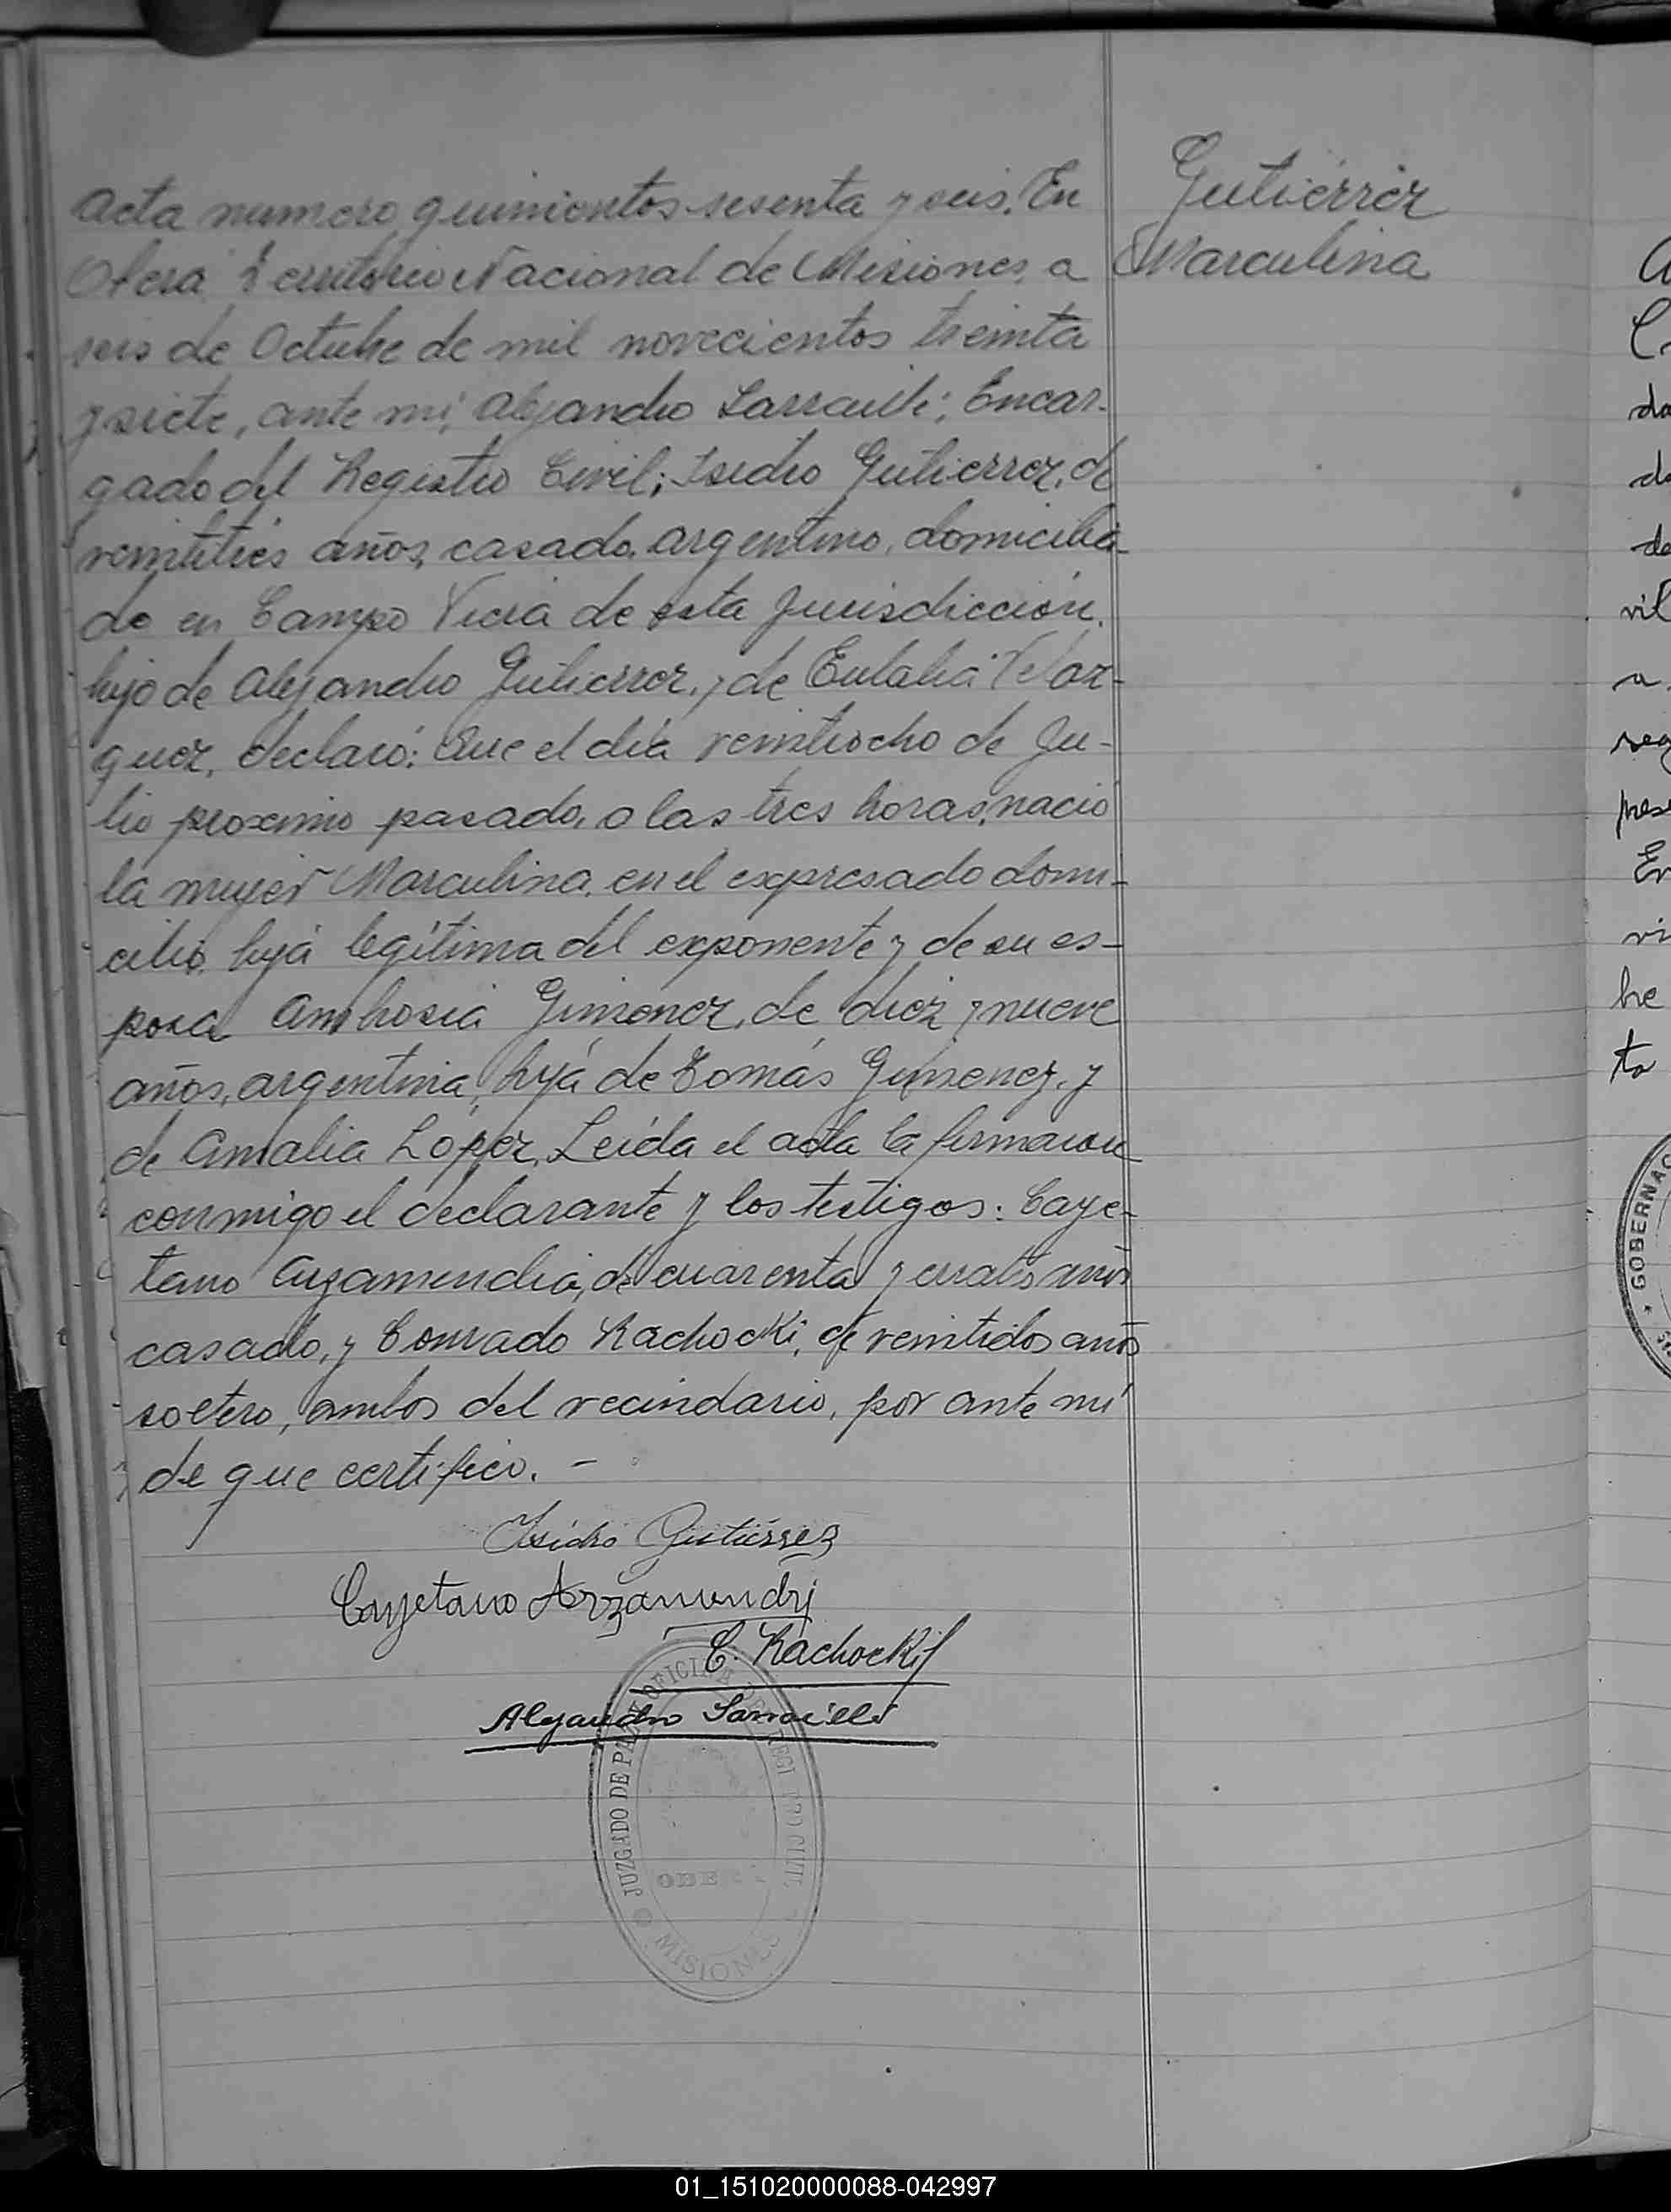 Acta numero quinientos sesenta y seis. En
Obera Territorio Nacional de Misiones, a
seis de Octubre de mil novecientos treinta
y siete, ante mi, Alejandro Sarraillé; Encar-
gado del Registro Civil; Isidro Gutierrez, de
veintitres años, casado, argentino, domicilia-
do en Campo Viera de esta Jurisdicción,
hijo de Alejandro Gutierrez, y de Eulalia Velaz-
quez, declaró: Que el día veintiocho de Ju-
lio proximo pasado, a las tres horas, nació
la mujer Marculina, en el expresado domi-
cilio, hija legítima del exponente y de su es-
posa Ambrosia Gimenez, de diez y nueve
años, argentina, hija de Tomás Gimenez, y
de Amalia López, Leída el acta la firmaron
conmigo el declarante y los testigos: Caye-
tano Arzamendia, de cuarenta y cuatro años
casado, y Conrado Rachocki, de veintidos años
soltero, ambos del vecindario, por ante mí
de que certifico. -
Gutiérrez
Marculina
Isidro Gutiérrez
Cayetano Arzamendi
C. Rachocki
Alejandro Sarraillé
JUZGADO DE PAZ Y OFICINA DE REGISTRO CIVIL
OBE
MISIONES
A
da
de
vil
a
seg
pres
En
vi
he
to
GOBERNAC
01_151020000088-042997